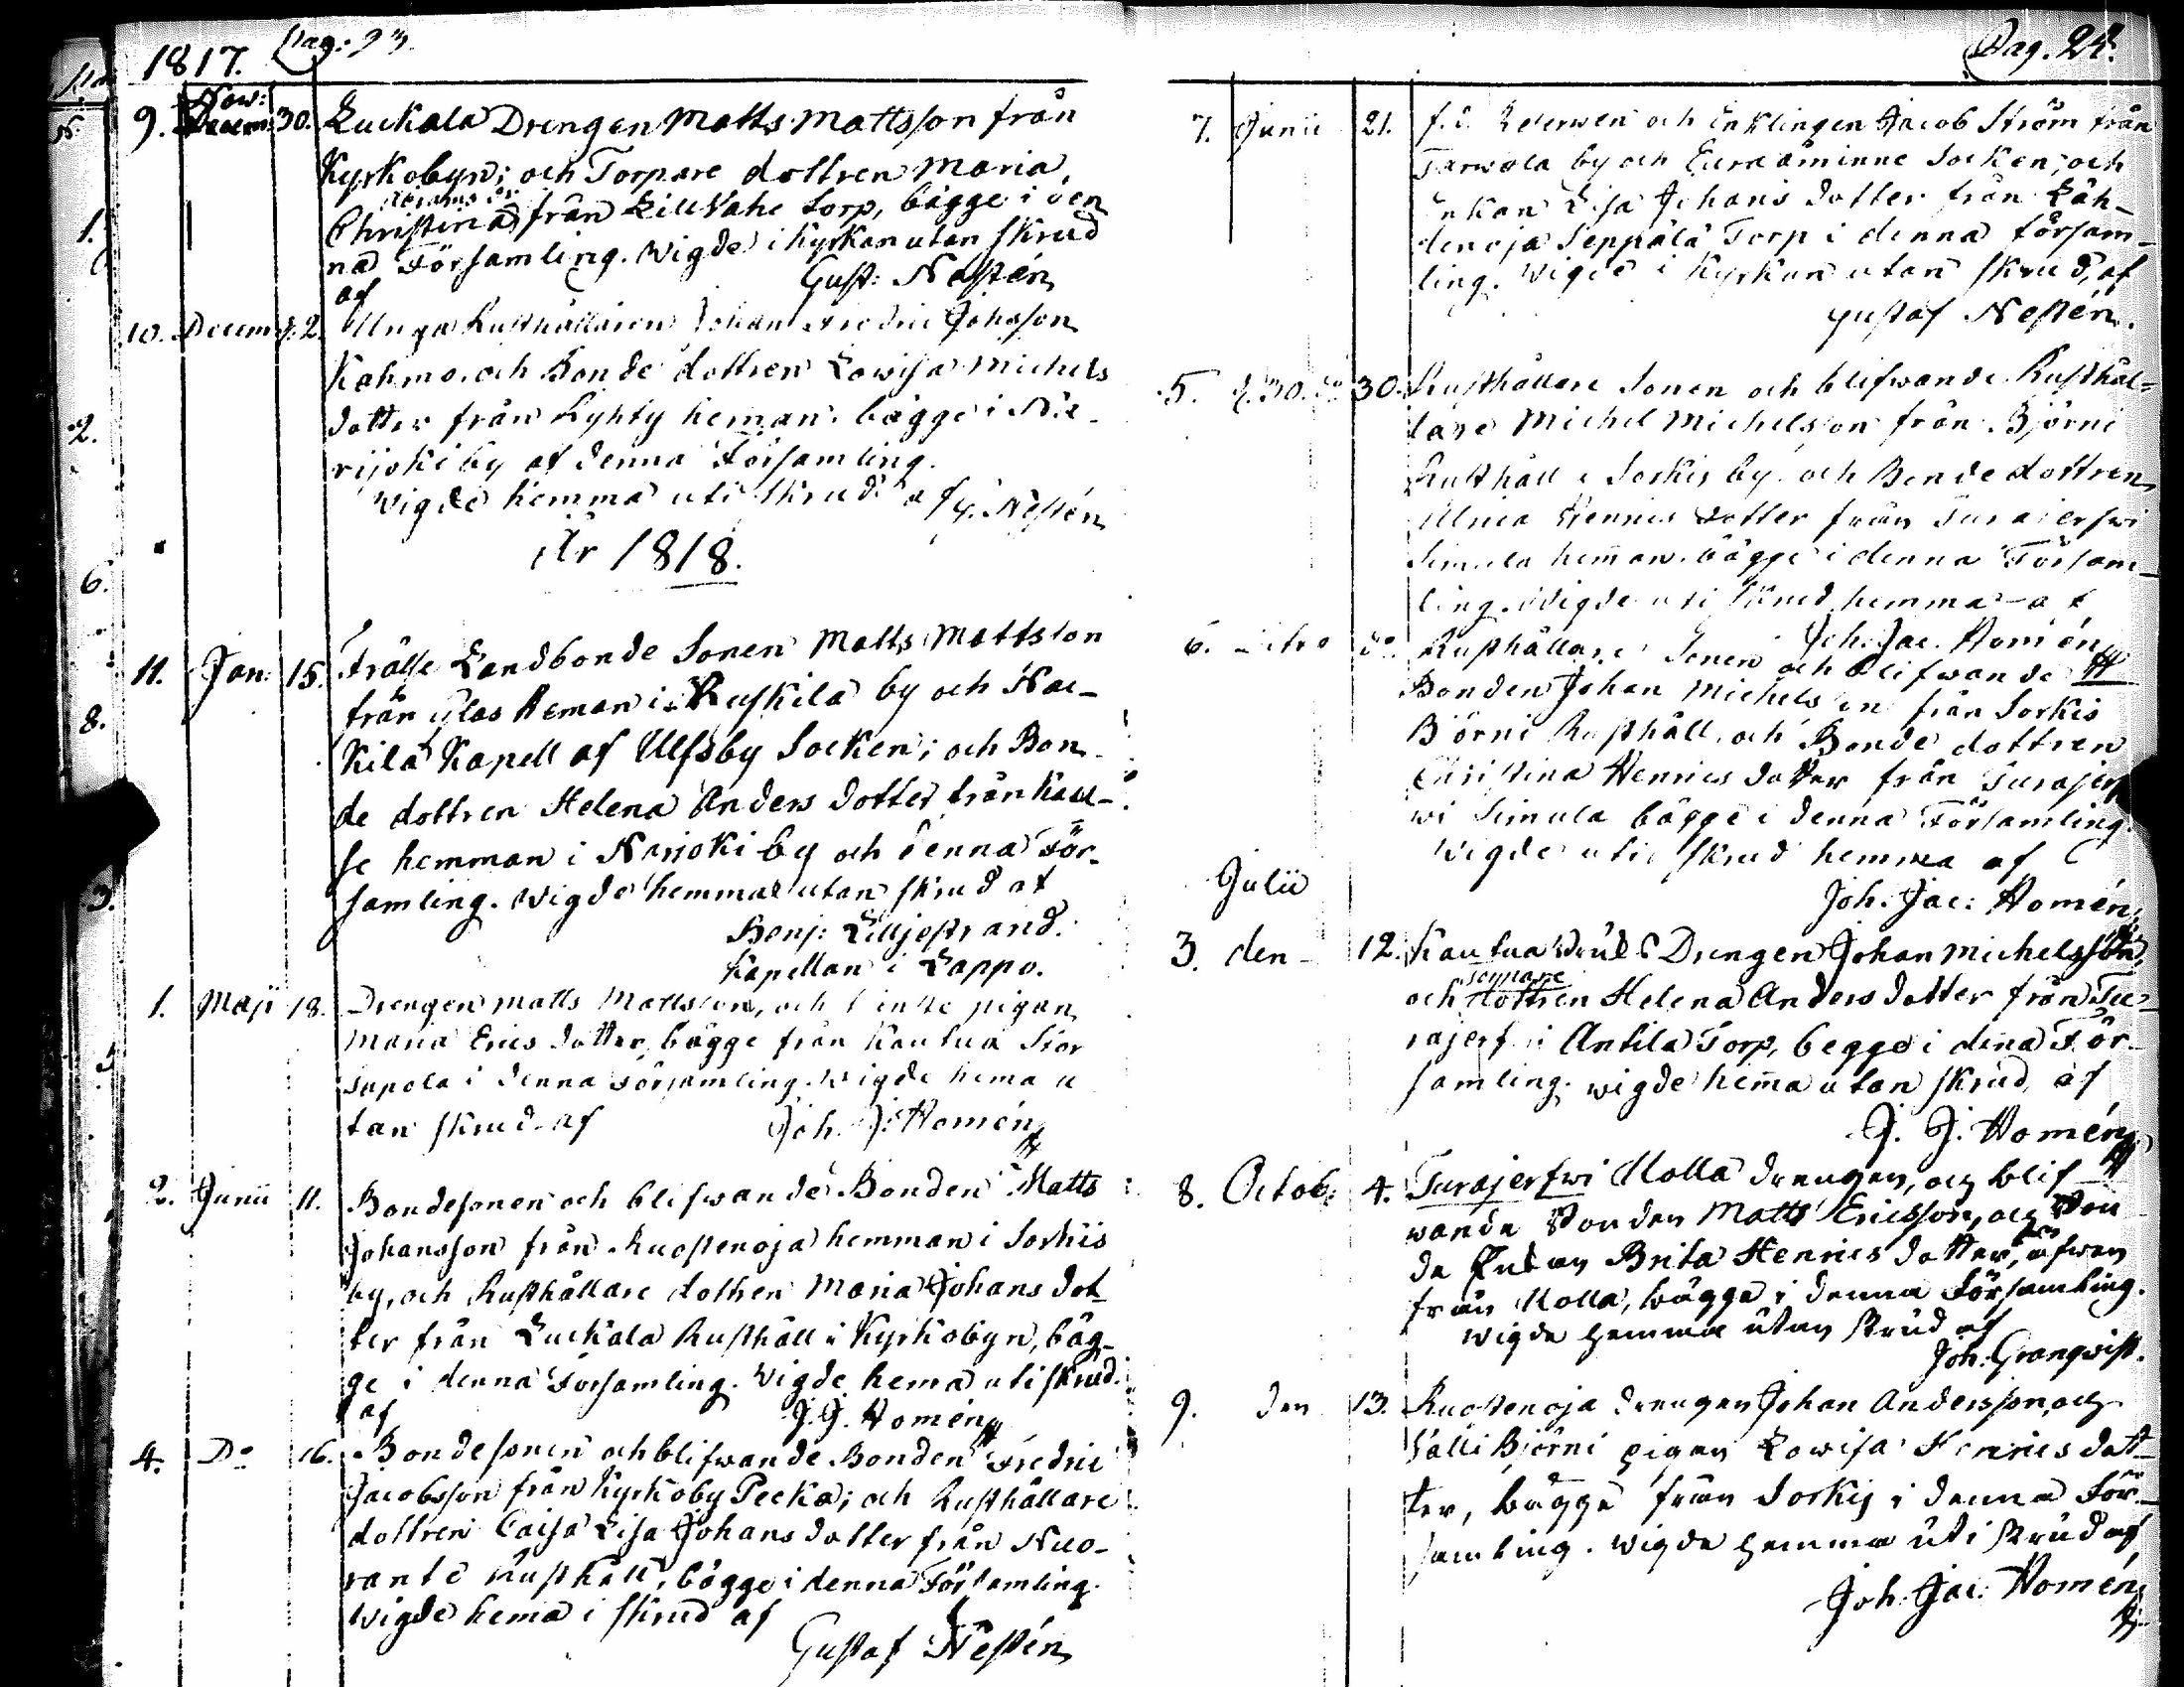 1817. Pag: 23.
9. Now: 30. Luckala Drengen Matts Mattsson från
Kyrkobyn; och Torpare dottren Maria
Christina från Lill Vahe torp, bägge i den
na Församling. Wigde i Kyrkan utan skrud
af Gust: Nestén
10. Decem 2. Unga Rusthållaren Johan Fredric Johsson
Kahma och Bonde dottren Lowisa Michels
dotter från Kyhty heman bägge i Na-
rijoki by af denna Församling.
Wigde hemma uti skrud af G. Nestén
År 1818.
11. Jan: 15. Frälse Landbonde Sonen Matts Mattsson
från Glas heman i Ruskila by och Na-
kila Kapell af Ulfsby Socken; och Bon-
de dottren Helena Anders dotter från
se hemman i Narjoki by och denna För-
samling. Wigde hemma utan skrud af
Benj: Lilljestrand.
Kapellan i Lappo.
1. Maji 18. Drengen Matts Mattsson, och pigan
Maria Erics dotter, bägge från Kautua Stor
Sapola i denna Församling. Wigde hema u
tan skrud af Joh. J: Homén
2. Junii 11. Bondesonen och blifwande Bonden Matts
Johansson från Ruostenoja hemman i Sorkis
by, och Rusthållare dottren Maria Johans dot
ter från Luckala Rusthåll i Kyrkobyn, bäg-
ge i denna Församling. Wigde hema uti skrud.
af J. J. Homén
4. Do 16. Bondesonen och blifwande Bonden Fredric
Jacobsson från Kyrkoby Pecka; och Rusthållare
dottren Caisa Lisa Johans dotter från Nuo-
ranté Rusthåll, bägge i denna Församling.
Wigde hema i skrud af
Gustaf Nestén
Pag. 24.
7. Junii 21. f. d. och Enklingen Jacob Ström från
Tarwola by och Euraåminne Socken; och
Enkan Lisa Johans dotter från Läh-
denoja Seppälä Torp i denna Försam-
ling. Wigde i Kyrkan utan skrud, af
Gustaf Nestén.
5. d. 30. 30. Rusthållare Sonen och blifwande Rusthål-
lare Michel Michelsson från Björni
Rusthåll i Sorkis by och Bonde dottren
Ulrica Henrics dotter från Turajerfwi
Simula heman bägge i denna Försam-
ling. Wigde uti skrud hemma af
Joh. Jac. Homén
6. ditro do. Rusthållare Sonen och Blifwande
Bonden Johan Michelsson från Sorkis
Björni Rusthåll, och Bonde dottren
Christina Henrics dotter från Turajerf
wi Simula bägge i denna Församling.
Wigde uti skrud hemma af
Joh. Jac: Homén
Julii
3. den 12. Kautua Bruks Drengen Johan Michelsson
och dottren Helena Anders dotter från Tu-
rajerf i Antila Torp, begge i dena För-
samling. wigde hema utan skrud, af
J. J. Homén
8. Octob: 4. Turajerfwi Uolla drengen, och blif
wande Bonden Matts Ericsson, och Bon
de Enkan Brita Henrics dotter, äfwen
från Uolla, bägge i denna Församling.
Wigde hemma utan skrud af
Joh: Granqwist.
9. den 13. Ruostenoja drengen Johan Andersson, och
Välli Björni pigan Lowisa Henrics dot-
ter, bägge från Sorkis i denna För-
samling. Wigde hemma uti skrud af
Joh. Jac: Homén